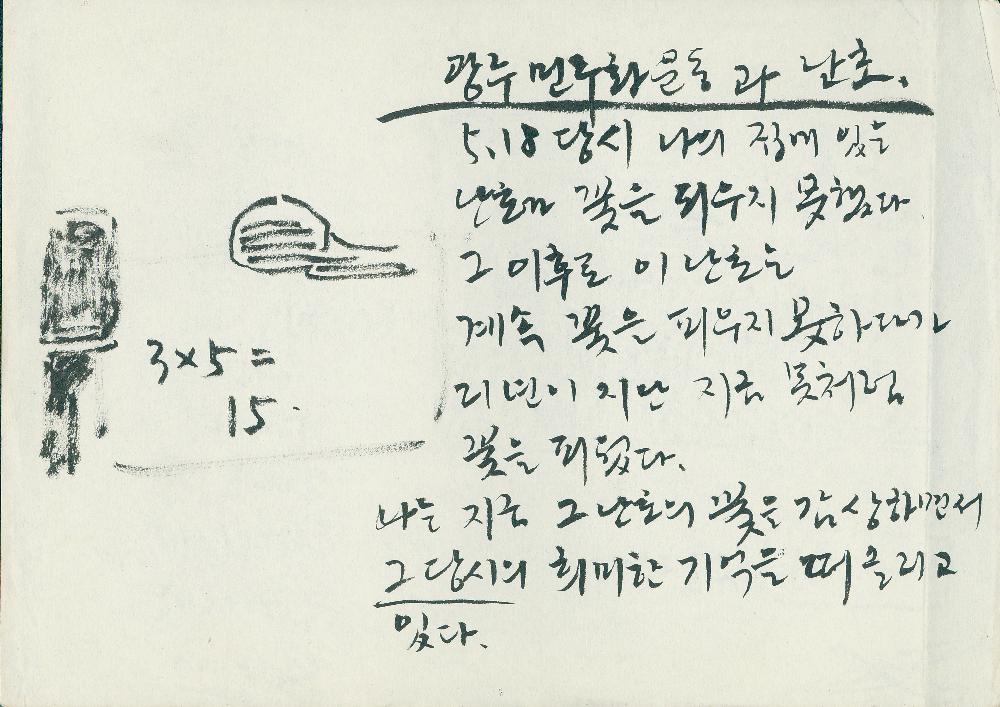 광주 민주화 운동 과 난초.
5.18 당시 나의 집에 있는
난초가 꽃을 피우지 못했다
그 이후로 이 난초는
계속 꽃을 피우지 못하다가
21년이 지난 지금 못처럼
꽃을 피웠다.
나는 지금 그 난초의 꽃을 감상하면서
그 당시의 희미한 기억을 떠올리고
있다.
3×5=
15.